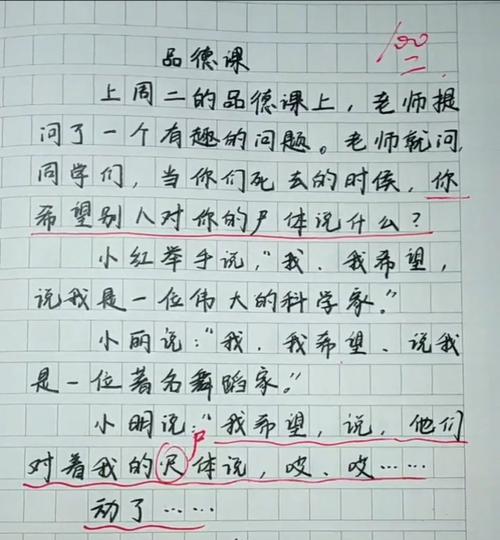 100
品德课
上周二的品德课上，老师提
问了一个有趣的问题。老师就问，
同学们，当你们死去的时候，你
希望别人对你的尸体说什么？
小红举手说，“我、我希望，
说我是一位伟大的科学家。”
小丽说：“我、我希望、说我
是一位著名舞蹈家。”
小明说：“我希望，说，他们
尸
对着我的尺体说，哎、哎……
动了……